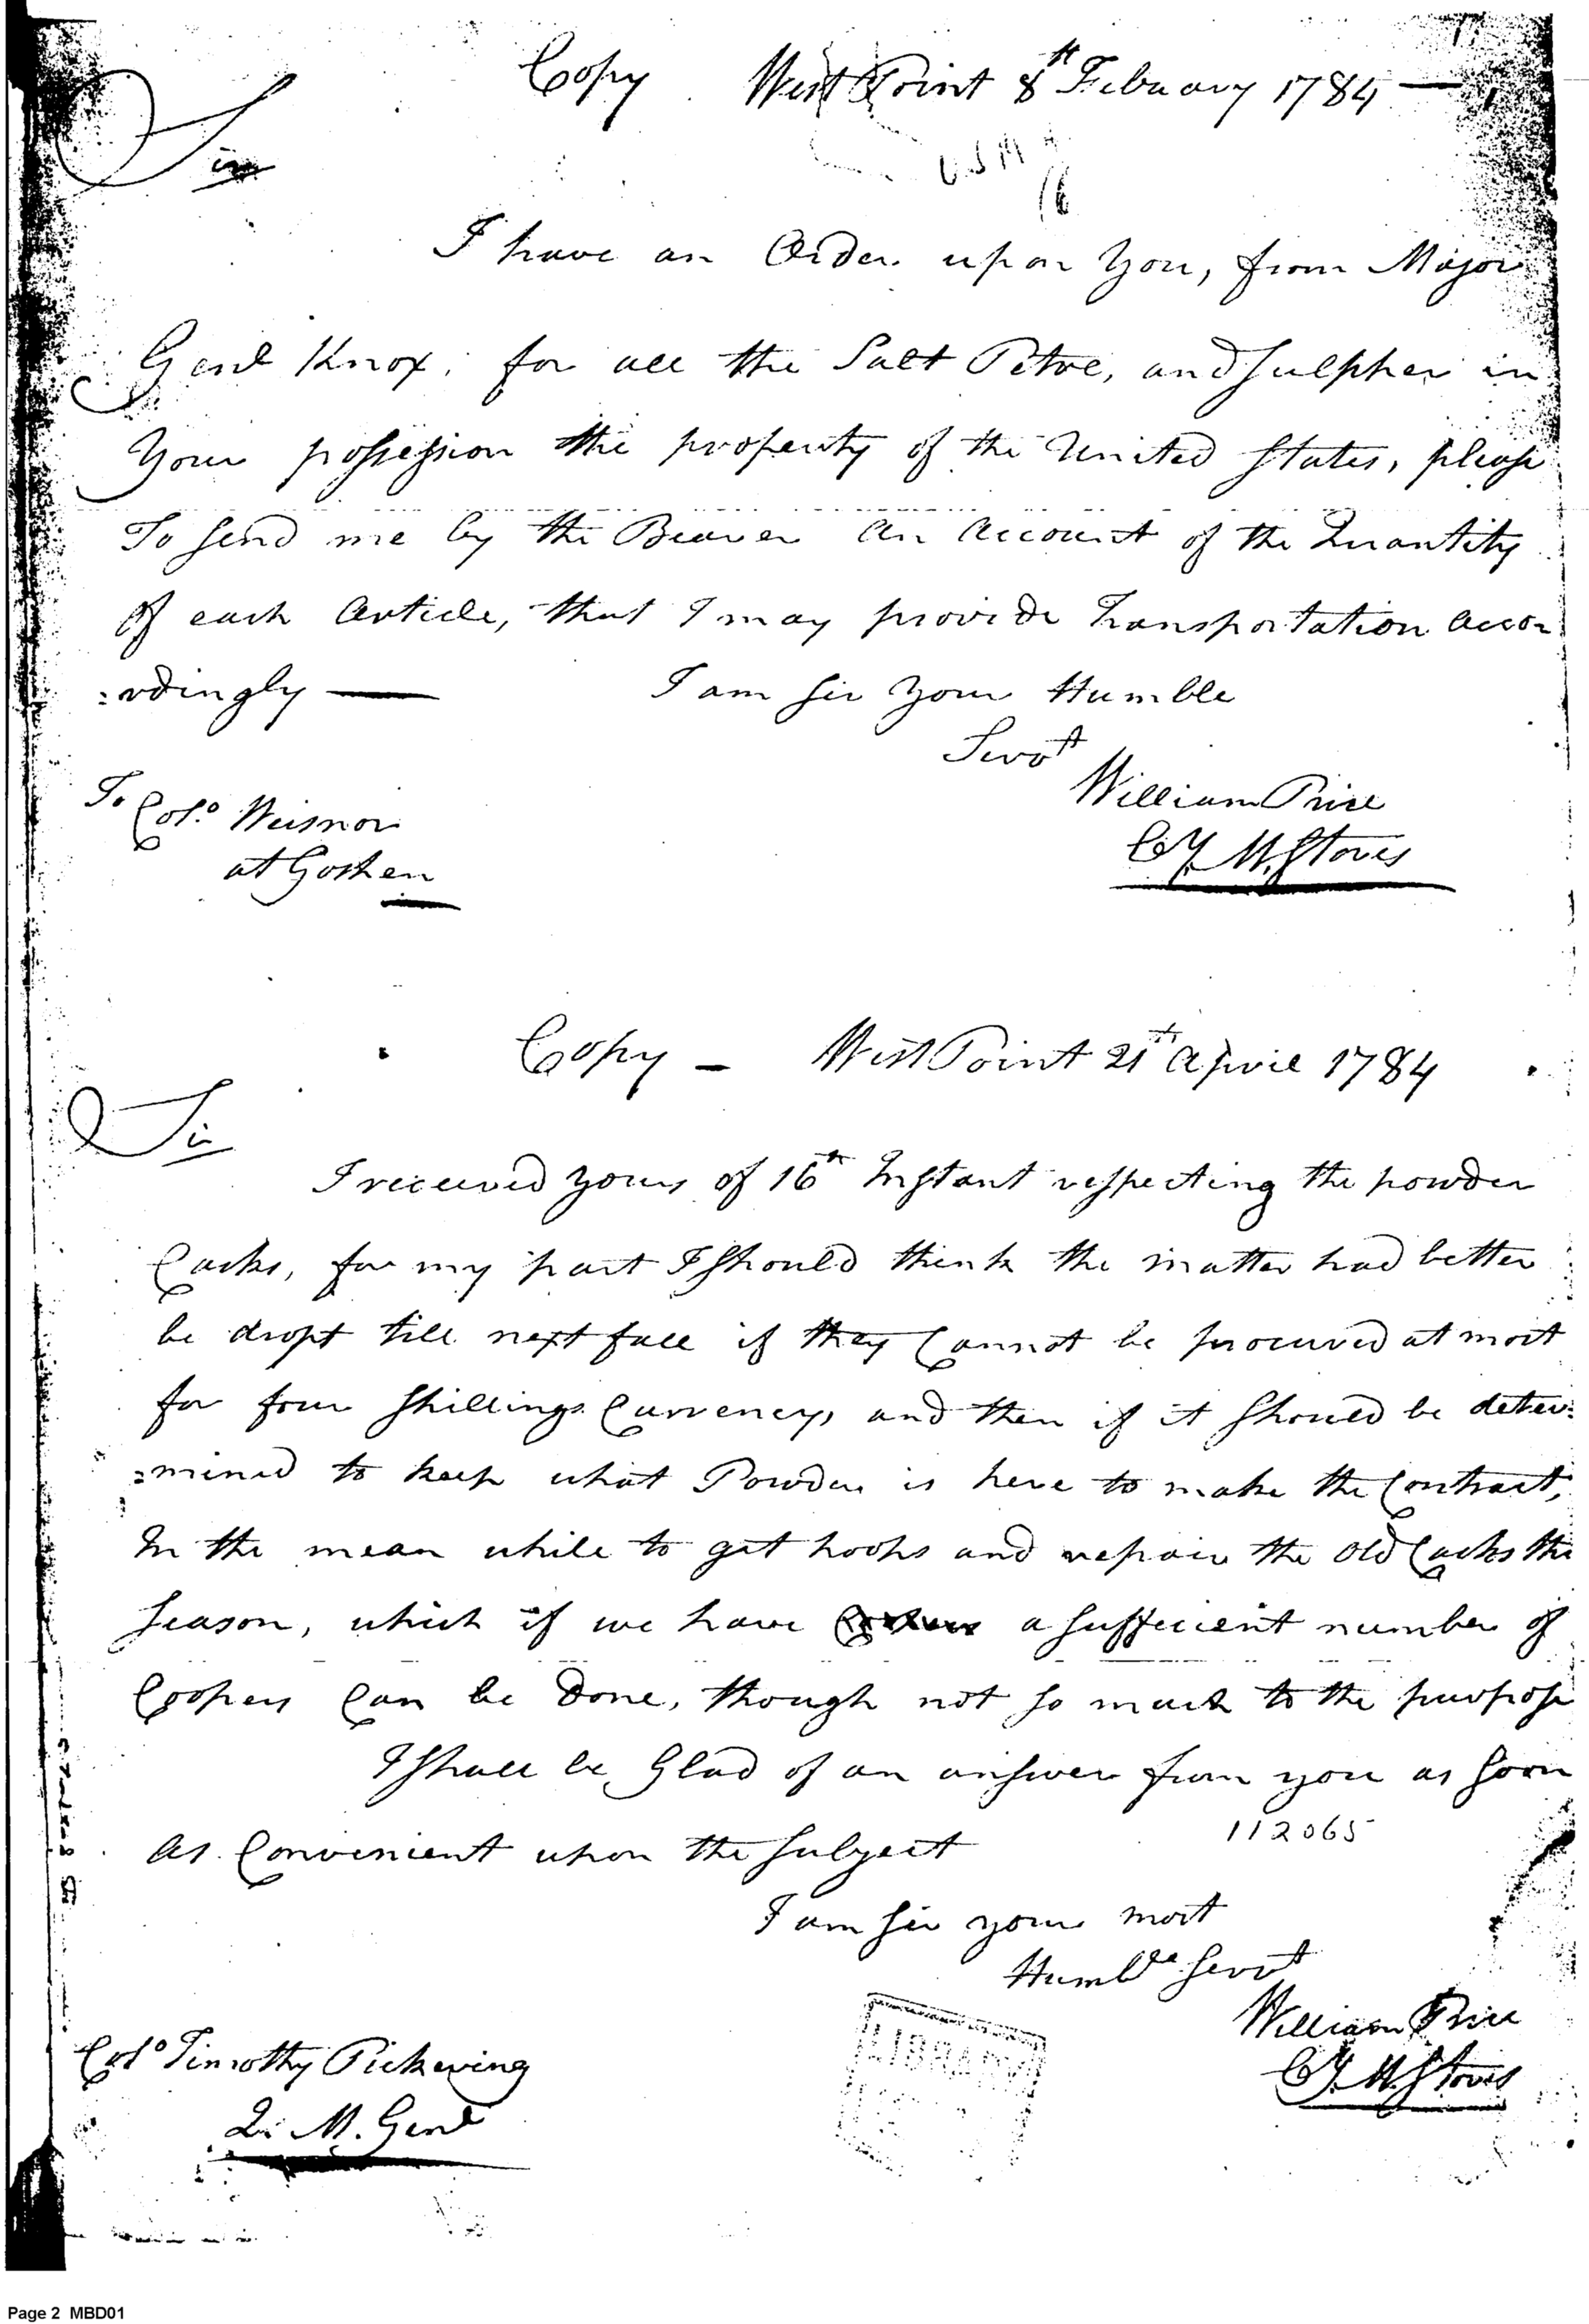 Copy West Point 8th Febuary 1784 —
Sir
U S M A
16
I have an Order upon You, from Major
Genl Knox, for all the Salt Petre, and Sulpher in
Your possession the property of the United States, please
To Send me by the Bearer an Account of the Quantity
of each Article, that I may provide Transportation Accor
:rdingly —
I am Sir Your Humble
Servt
William Price
Cy M. Stores
To Colo. Weisnor
at Goshen
Copy — West Point 21th April 1784
Sir
I received yours of 16th Instant respecting the powder
Casks, for my part I Should think the matter had better
be dropt till next fall if they Cannot be procured at most
for four Shillings Currency, and then if it Should be deter:
:mined to keep what Powder is here to make the Contract,
In the mean while to get hoops and repair the Old Casks the
Season, which if we have a Sufficient number of
Coopers Can be Done, though not so much to the purpose
I Shall be Glad of an answer from you as Soon
as Convenient upon the Subject
112065
I am Sir your most
Humble Servt
William Price
Cy. M. Stores
LIBRARY
Colo Timothy Pickering
Q: M. Genl
Page 2 MBD01